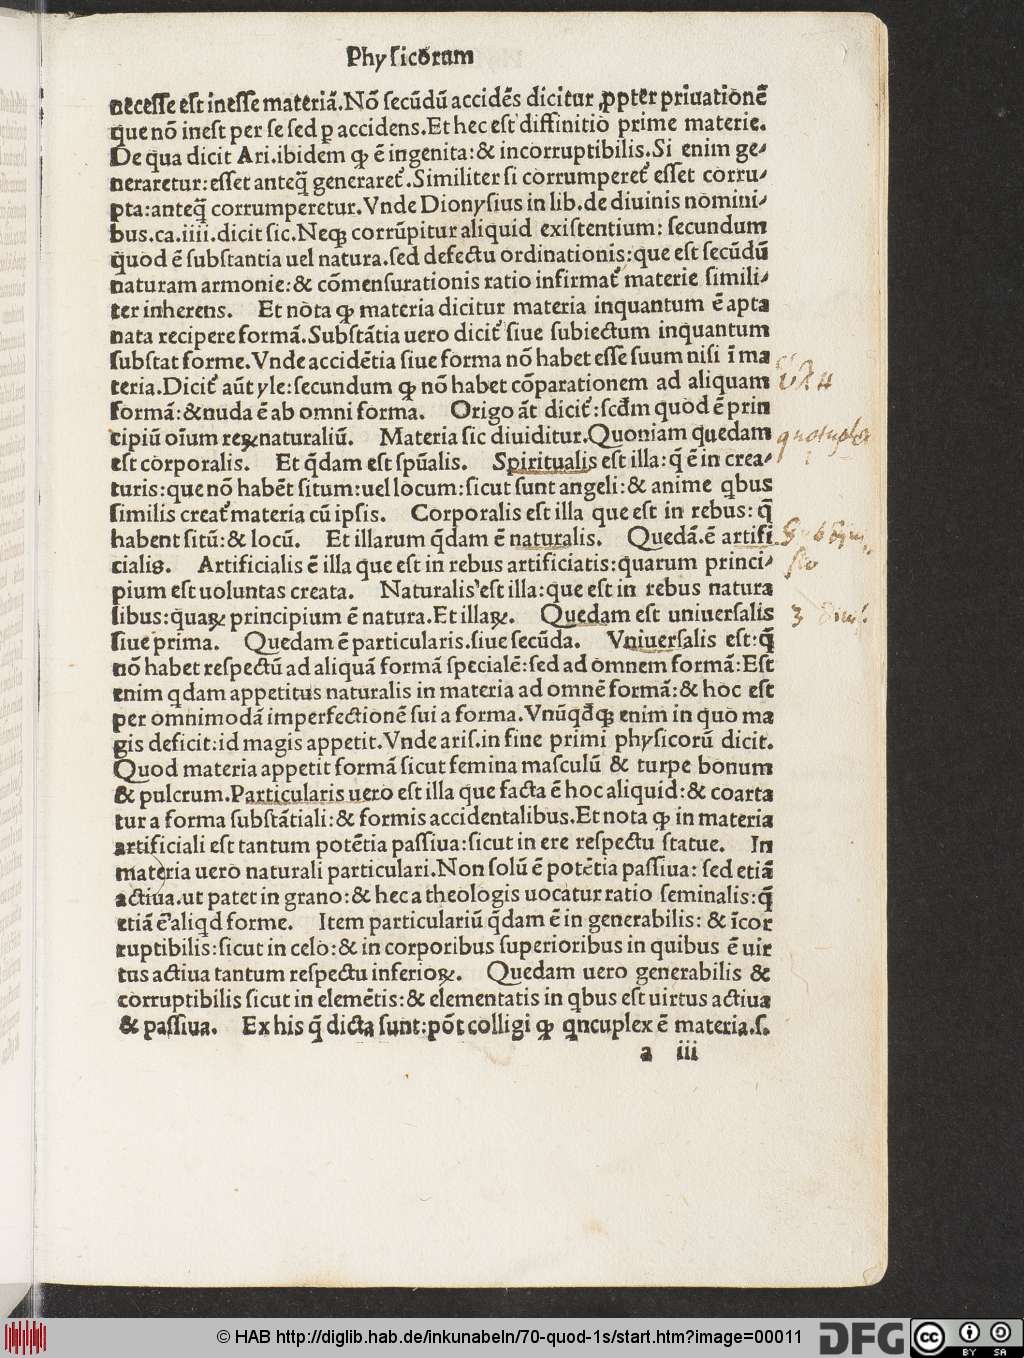 Phyſicorum
neceſſe eſt ineſſe materiã.Nõ ſecũdũ accidẽs dicitur ꝓpter priuationẽ
que nõ ineſt per ſe ſed ꝑ accidens.Et hec eſt diffinitio prime materie.
De qua dicit Ari.ibidem ꝙ ẽ ingenita:& incorruptibilis.Si enim ge⸗
neraretur:eſſet anteq̃ generaret᷑.Similiter ſi corrumperet᷑ eſſet corru⸗
pta:anteq̃ corrumperetur.Vnde Dionyſius in lib.de diuinis nomini⸗
bus.ca.iiii.dicit ſic.Neqꝫ corrũpitur aliquid exiſtentium: ſecundum
quod ẽ ſubſtantia uel natura.ſed defectu ordinationis:que eſt ſecũdũ
naturam armonie:& cõmenſurationis ratio infirmat᷑ materie ſimili⸗
ter inherens. Et nota ꝙ materia dicitur materia inquantum ẽ apta
nata recipere formã.Subſtãtia uero dicit᷑ ſiue ſubiectum inquantum
ſubſtat forme.Vnde accidẽtia ſiue forma nõ habet eſſe ſuum niſi ĩ ma
teria.Dicit᷑ aũt yle:ſecundum ꝙ nõ habet cõparationem ad aliquam
formã:& nuda ẽ ab omni forma. Origo ãt dicit᷑:ſcd̃m quod ẽ prin
cipiũ oĩum reꝝ naturaliũ. Materia ſic diuiditur.Quoniam quedam
eſt corporalis. Et q̃dam eſt ſpũalis. Spiritualis eſt illa:q̃ ẽ in crea⸗
turis:que nõ habẽt ſitum:uel locum:ſicut ſunt angeli:& anime qbus
ſimilis creat᷑ materia cũ ipſis. Corporalis eſt illa que eſt in rebus: q̃
habent ſitũ:& locũ. Et illarum q̃dam ẽ naturalis. Quedã.ẽ artifi
cialis. Artificialis ẽ illa que eſt in rebus artificiatis:quarum princi⸗
pium eſt uoluntas creata. Naturalis eſt illa:que eſt in rebus natura
libus:quaꝝ principium ẽ natura.Et illaꝝ. Quedam eſt uniuerſalis
ſiue prima. Quedam ẽ particularis.ſiue ſecũda. Vniuerſalis eſt:q̃
nõ habet reſpectũ ad aliquã formã ſpecialẽ:ſed ad omnem formã:Eſt
enim qdam appetitus naturalis in materia ad omnẽ formã:& hoc eſt
per omnimodã imperfectionẽ ſui a forma.Vnũqd̃qꝫ enim in quo ma
gis deficit:id magis appetit.Vnde ariſ.in fine primi phyſicorũ dicit.
Quod materia appetit formã ſicut femina maſculũ & turpe bonum
& pulcrum.Particularis uero eſt illa que facta ẽ hoc aliquid:& coarta
tur a forma ſubſtãtiali:& formis accidentalibus.Et nota ꝙ in materia
artificiali eſt tantum potẽtia paſſiua:ſicut in ere reſpectu ſtatue. In
materia uero naturali particulari.Non ſolũ ẽ potẽtia paſſiua: ſed etiã
actiua.ut patet in grano:& hec a theologis uocatur ratio ſeminalis:q̃
etiã ẽ aliqd forme. Item particulariũ q̃dam ẽ in generabilis: & ĩcor
ruptibilis:ſicut in celo:& in corporibus ſuperioribus in quibus ẽ uir
tus actiua tantum reſpectu inferioꝝ. Quedam uero generabilis &
corruptibilis ſicut in elemẽtis:& elementatis in qbus eſt uirtus actiua
& paſſiua. Ex his q̃ dicta ſunt:põt colligi ꝙ qncuplex ẽ materia.ſ.
a iii
© HAB http://diglib.hab.de/inkunabeln/70-quod-1s/start.htm?image=00011
DFG
cc BY SA